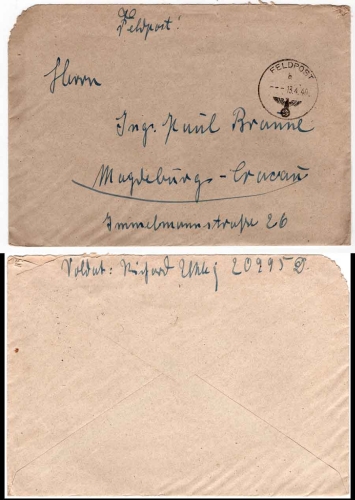 Feldpost!
FELDPOST
a
--- 13.4.40.
Herrn
Ing. Paul Branne
Magdeburg-Cracau
Immelmannstraße 26
Soldat: Richard 20995 D.